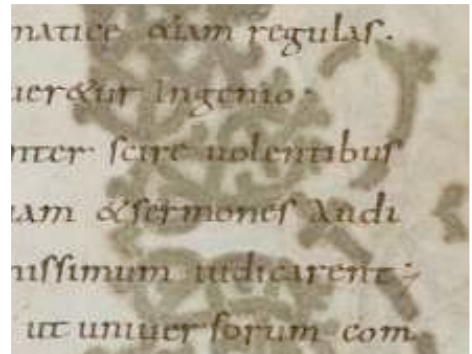 matice &iam regulas.
uer&ur Ingenio.
nter scire uolentibus
uam &sermones audi
nissimum iudicarent;
ut uniuersorum com